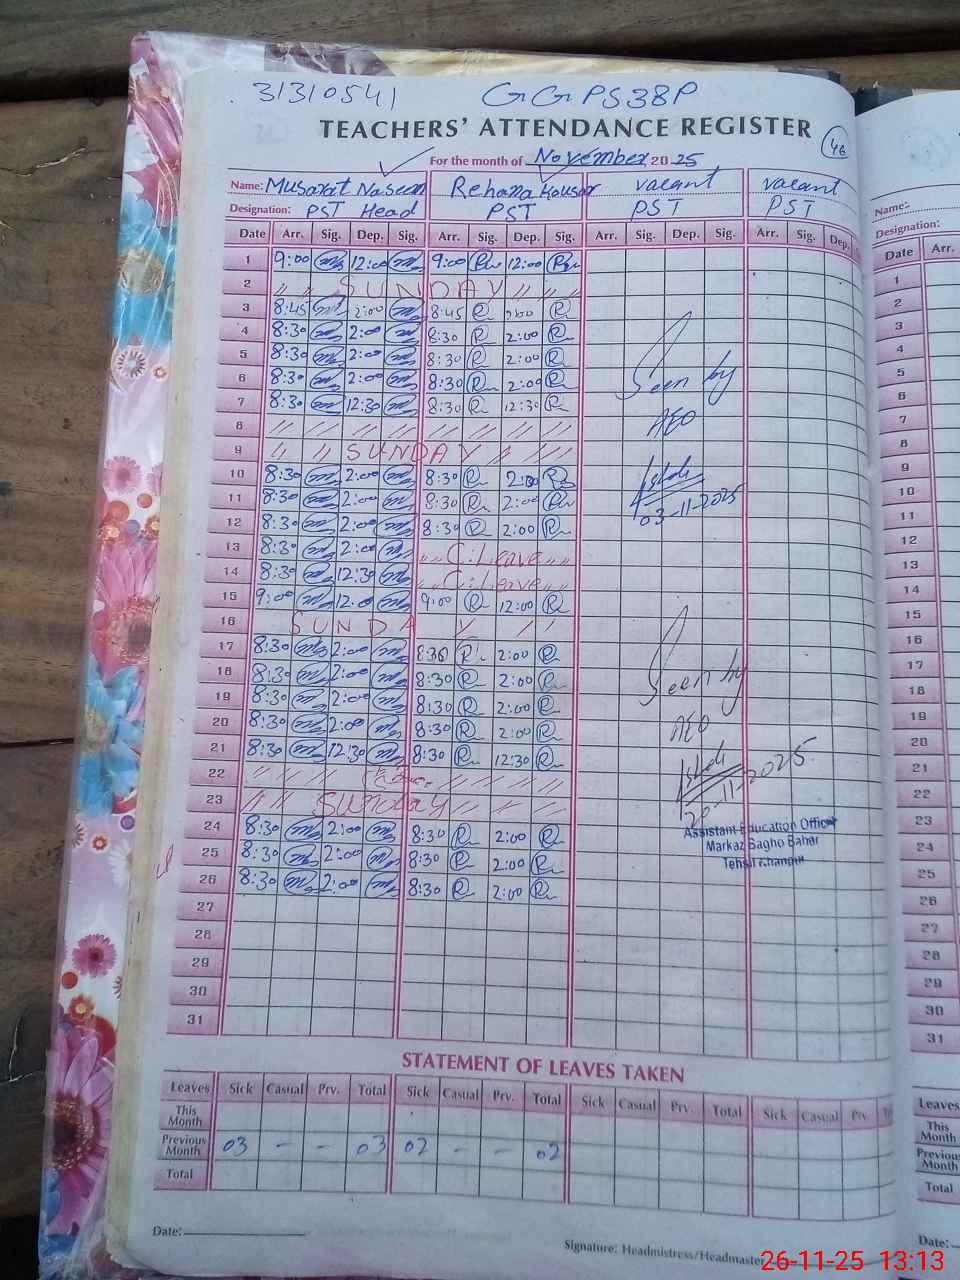 31310541 GGPS 38P
TEACHERS' ATTENDANCE REGISTER 46
For the month of November 2025
Name: Musarat Naseem Rehana Kousar vacant vacant
Designation: PST Head PST PST PST
Date Arr. Sig. Dep. Sig. Arr. Sig. Dep. Sig. Arr. Sig. Dep. Sig. Arr. Sig. Dep.
1 9:00 12:00 9:00 12:00
2 " " SUNDAY " " "
3 8:45 2:00 8:45 2:00
4 8:30 2:00 8:30 2:00
5 8:30 2:00 8:30 2:00
6 8:30 2:00 8:30 2:00
7 8:30 12:30 8:30 12:30
Seen by
AEO
8
9 SUNDAY
10 8:30 2:00 8:30 2:00
11 8:30 2:00 8:30 2:00
03-11-2025
12 8:30 2:00 8:30 2:00
13 8:30 2:00 " " C.Leave " "
14 8:30 12:30 " " C.Leave " "
15 9:00 12:00 9:00 12:00
16 SUNDAY
17 8:30 2:00 8:30 2:00
18 8:30 2:00 8:30 2:00
Seen by
19 8:30 2:00 8:30 2:00
20 8:30 2:00 8:30 2:00
AEO
21 8:30 12:30 8:30 12:30
22
23 " " Sunday " " "
20-11-2025
Assistant Education Officer
Markaz Bagho Bahar
Tehsil Khanpur
24 8:30 2:00 8:30 2:00
25 8:30 2:00 8:30 2:00
26 8:30 2:00 8:30 2:00
27
28
29
30
31
STATEMENT OF LEAVES TAKEN
Leaves Sick Casual Prv. Total Sick Casual Prv. Total Sick Casual Prv. Total Sick Casual Prv.
This Month
Previous Month 03 - - 03 02 - - 02
Total
Date:
Signature: Headmistress/Headmaster
Name:
Designation:
Date Arr.
1
2
3
4
5
6
7
8
9
10
11
12
13
14
15
16
17
18
19
20
21
22
23
24
25
26
27
28
29
30
31
Leaves
This Month
Previous Month
Total
Date:
26-11-25 13:13